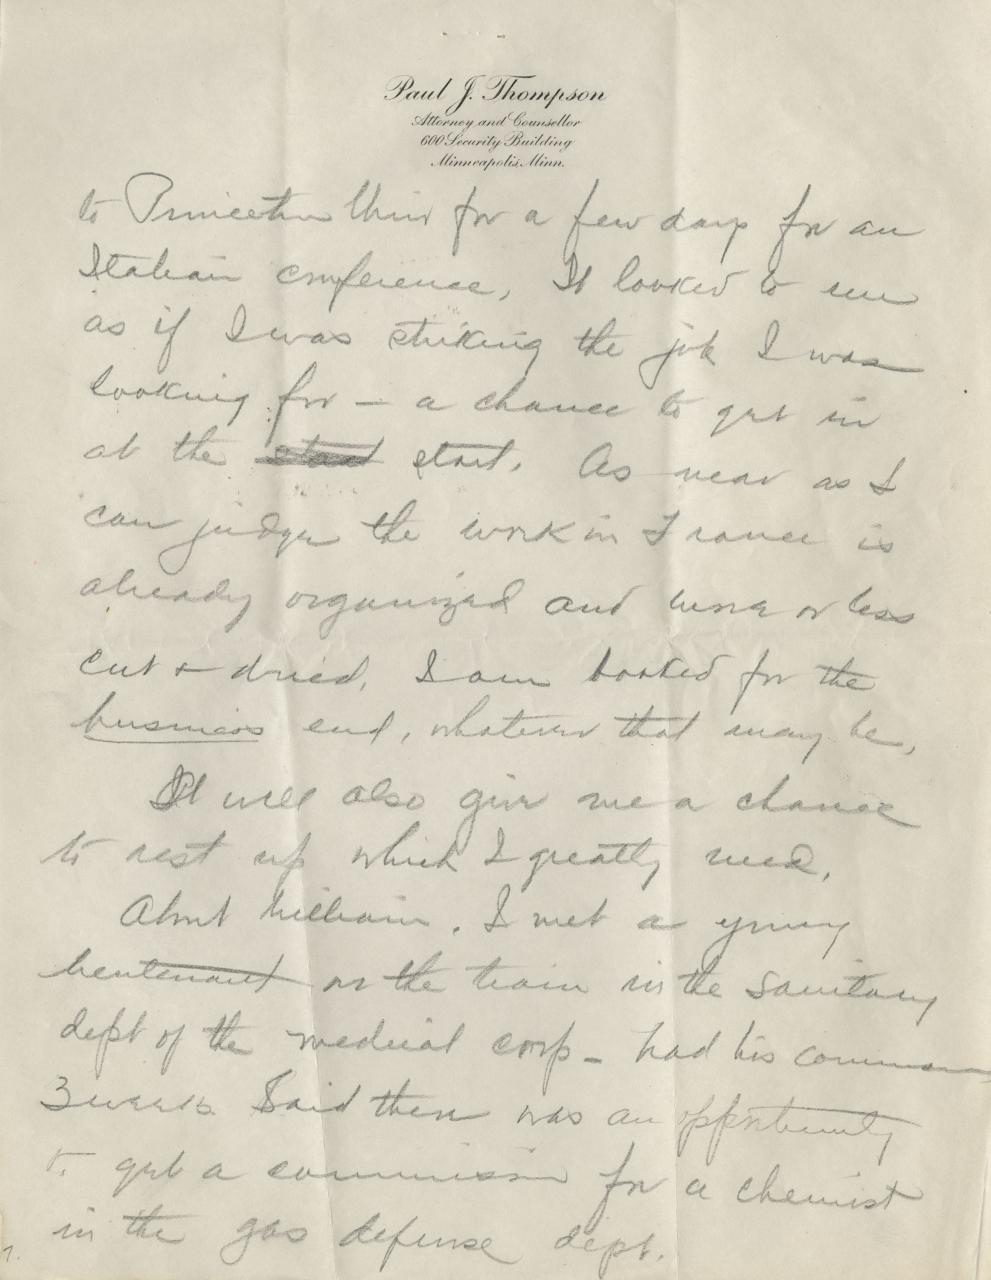 Paul J. Thompson
Attorney and Counsellor
600 Security Building
Minneapolis, Minn.
to Princeton Univ for a few days for an
Italian conference. It looked to me
as if I was striking the job I was
looking for — a chance to get in
at the start start. As near as I
can judge the work in France is
already organized and more or less
cut & dried. I am booked for the
business end, whatever that may be.
It will also give me a chance
to rest up which I greatly need.
About William. I met a young
lieutenant on the train in the Sanitary
dept of the medical corp — had his commission
3 weeks. Said there was an opportunity
to get a commission for a chemist
in the gas defense dept.